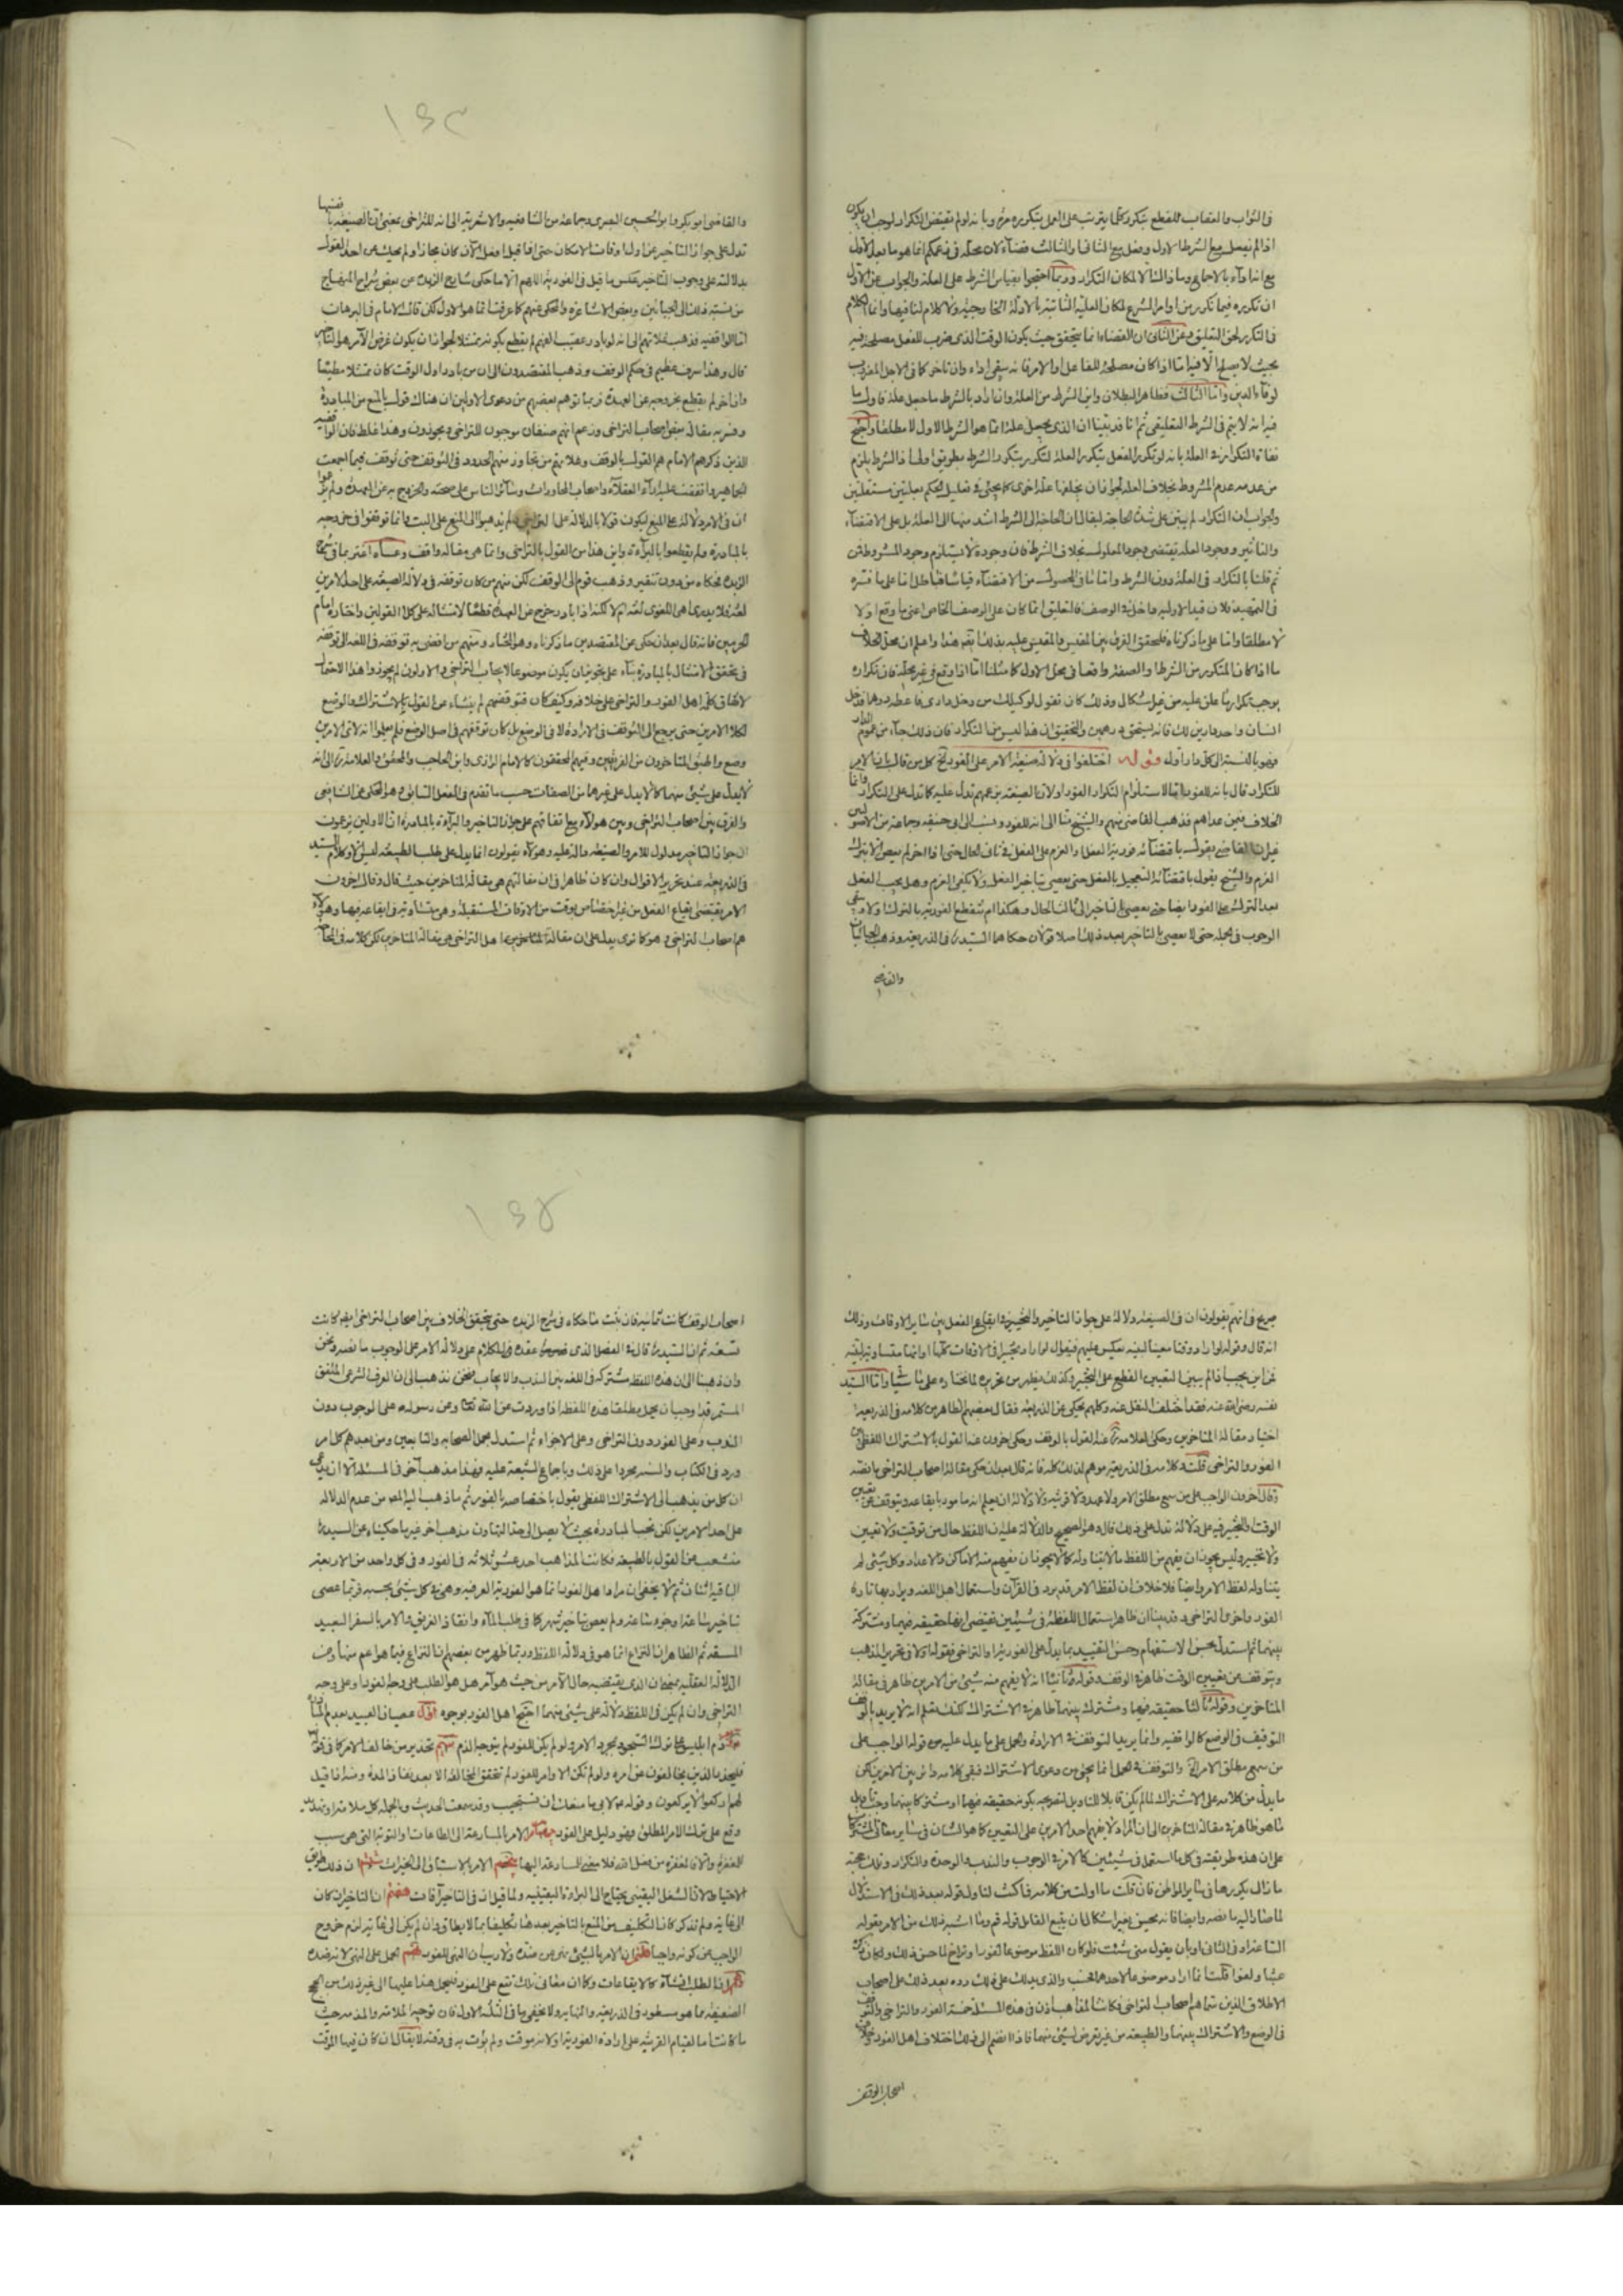 في الثواب والعقاب للقطع بتكرر كلما يترتب على العمل بتكرره وبانه لو لم يقتض التكرار لوجب ان يكون
اذا لم يفصل مع الشرط الاول وفعل مع الثاني او الثالث قضاء لان محله في زعمكم انما هو ما بعد الاول
مع انه اداء بالاجماع وما ذاك الا لمكان التكرار وربما احتجوا بقياس الشرط على العلة والجواب عن الاول
ان تكرره فيما تكرر من اوامر الشرع لمكان العلية الثابتة بالادلة الخارجية ولا كلام لنا فيها وانما الكلام
في التكرير لحق التعليق وعن الثاني ان القضاء انما يتحقق حيث يكون الوقت الذي ضرب للفعل مصلحة فيه
بحيث لا يصلح الا فيه اما اذا كان مصلحة للفاعل او الامر فانه يبقى اداء وان تأخر كما في الاجل المضروب
لوفاء الدين واما الثالث فظاهر البطلان واين الشرط من العلة وان اراد بالشرط ما جعل علة فاول ما
فيه انه لا يتم في الشرط التعليقي ثم انا قد بينا ان الذي يجعل علة انما هو الشرط الاول لا مطلقا واحتج
نفاة التكرار في العلة بانه لو تكرر الفعل بتكرر العلة لتكرر بتكرر الشرط بطريق اولى اذ الشرط يلزم
من عدمه عدم المشروط بخلاف العلة لجواز ان يخلفها علة اخرى كما يجئ في تعليل الحكم بعلتين مستقلتين
والجواب ان التكرار لم يبتن على شدة الحاجة ليقال ان الحاجة الى الشرط اشد منها الى العلة بل على الاقتضاء
والتأثير ووجود العلة يقتضي وجود المعلول بخلاف الشرط فان وجوده لا يستلزم وجود المشروط فمن
ثم قلنا بالتكرار في العلة دون الشرط
لا مطلقا واما على ما ذكرناه فلتحقق الفرق بين المقيس والمقيس عليه بذلك تفهم هذا واعلم ان محل الخلاف
ما اذا كان المتكرر من الشرط او الصفة واقعا في محل الاول كما مثلنا اما اذا وقع في غير محله فان تكراره
يوجب تكرار ما علق عليه من غير اشكال وذلك كان تقول لوكيلك من دخل داري فاعطه درهما فدخل
انسان واحد دارين لك فانه يستحق درهمين والتحقيق ان هذا ليس من التكرار فان ذلك جاء من عموم الدار
فهو بالنسبة الى كل دار اول قوله اختلفوا في دلالة صيغة الامر على الفور الخ كل من قال بان الامر
للتكرار قال بانه للفور اما لاستلزام التكرار الفور اولان الصيغة بزعمهم تدل عليه كما تدل على التكرار وانما
الخلاف فيمن عداهم فذهب القاضي منهم والشيخ منا الى انه للفور ونسب الى ابي حنيفة وجماعة من الاصوليين
غير ان القاضي يقول باقتضائه فورية الفعل او العزم على الفعل في ثاني الحال حتى اذا اخر لم يعص الا بترك
العزم والشيخ يقول باقتضائه التعجيل بالفعل حتى يعصي بتأخير الفعل ولا يكفي العزم وهل يجب الفعل
بعد الترك على الفور ايضا حتى يعصي بالتأخير الى ثالث الحال وهكذا ام تنقطع الفورية بالترك اولا ويبقى
الوجوب في الجملة حتى لا يعصي بالتأخير بعد ذلك اصلا قولان حكاهما السيد في الذريعة وذهب الجبائيان
والقاضي
١٤٣
والقاضي ابو بكر وابو الحسين البصري وجماعة من الشافعية والاشعرية الى انه للتراخي بمعنى ان الصيغة بنفسها
تدل على جواز التأخير عن اول اوقات الامكان حتى اذا قيل افعل الآن كان مجازا ولم يحك عن احد القول
بدلالته على وجوب التأخير عكس ما قيل في الفورية اللهم الا ما حكى شارح الزبدة عن بعض شراح المنهاج
من نسبة ذلك الى الجبائيين وبعض الاشاعرة والمحكي عنهم كما عرفت انما هو الاول لكن قال الامام في البرهان
اما الواقفية فذهب غلاتهم الى انه لو بادر عقيب الفهم لم يقطع بكونه ممتثلا لجواز ان يكون غرض الآمر هو التأخير
قال وهذا سرف عظيم في حكم الوقف وذهب المقتصدون الى ان من بادر اول الوقت كان ممتثلا مطيعا
وان اخر لم يقطع بخروجه عن العهدة فربما توهم بعضهم من دعوى الاولين ان هناك قول بالمنع من المبادرة
وفسر به مقالة بعض اصحاب التراخي وزعم انهم صنفان موجبون للتراخي ومجوزون وهذا غلط فان الواقفية
الذين ذكرهم الامام هم القول بالوقف وهلا يتم من تجاوز منهم الحدود في التوقف حتى توقف فيما اجمعت
الجماهير واتفقت عليه آراء العقلاء واصحاب المحاورات وسائر الناس على صحته والخروج به عن العهدة ولم يدعوا
ان في الامر دلالة على المنع ليكون قولا بالدلالة على التراخي ولم يذهبوا الى المنع على البت وانما توقفوا في خروجه
بالمبادرة ولم يقطعوا بالبراءة واين هذا من القول بالتراخي وانما هي مقالة واقف وعساه اغتر بما في شرح
الزبدة فحكاه من دون تنقير وذهب قوم الى الوقف لكن منهم من كان توقفه في دلالة الصيغة على احد الامرين
لغة فلا يدري اهي للفور لغة ام لا لكنه اذا بادر خرج عن العهدة قطعا لامتثاله على كلا القولين واختاره امام
الحرمين فانه قال بعد ان حكى عن المقتصدين ما ذكرناه وهو المختار ومنهم من افضى به توقفه في اللغة الى توقفه
في تحقق الامتثال بالمبادرة بناء على تجويز ان يكون موضوعا لايجاب التراخي والاولون لم يجوزوا هذا الاحتمال
لاتفاق كلا اهل الفور والتراخي على خلافه وكيف كان فتوقفهم لم ينشاء عن القول بالاشتراك والوضع
لكلا الامرين حتى يرجع الى التوقف في الارادة لا في الوضع بل كان توقفهم في اصل الوضع فلم يعلموا انه لاي الامرين
وضع واطبق المتأخرون من الفريقين وفيهم المحققون كالامام الرازي وابن الحاجب والمحقق والعلامة الى انه
لا يدل على شيء منهما كما لا يدل على غيرها من الصفات حسب ما تقدم في الفصل السابق وهو المحكي عن الشافعي
والفرق بين اصحاب التراخي وبين هؤلاء مع اتفاقهم على جواز التأخير والبراءة بالمبادرة ان الاولين يزعمون
ان جواز التأخير مدلول للامر والصيغة دالة عليه وهؤلاء يقولون انما يدل على طلب الطبيعة ليس الا وكلام السيد
في الذريعة عند تحرير الاقوال وان كان ظاهرا في ان مقالتهم هي مقالة المتأخرين حيث قال وقال اخرون
الامر يقتضي ايقاع الفعل من غير اختصاص بوقت من الاوقات المستقبلة وهي متساوية في ايقاعه فيها وهؤلاء
هم اصحاب التراخي وهو كما ترى يدل على ان مقالة المتأخرين اهل التراخي هي مقالة المتأخرين لكن كلامه في الحجاج
صريح في انهم يقولون ان في الصيغة دلالة على جواز التأخير والتخيير في ايقاع الفعل بين سائر الاوقات وذلك
انه قال وقوله لو اراد وقتا معينا لبينه نعكس عليهم فنقول لو اراد تخييرا في الاوقات كلها او انها متساوية لبينه
فمن اين يجب اذا لم يبين التعيين القطع على التخيير وكذلك يظهر من تحريره لما نختاره على ما سيأتي واما السيد
نفسه رضي الله عنه فقد اختلف النقل عنه وكلهم يحكي عن الذريعة فقال بعضهم الظاهر من كلامه في الذريعة
اختيار مقالة المتأخرين وحكى العلامة عنه القول بالوقف وحكى اخرون عنه القول بالاشتراك اللفظي بين
الفور والتراخي قلت وكلامه في الذريعة موهم لذلك كله فانه قال بعد ان حكى مقالة اصحاب التراخي ما نصه
وقال اخرون الواجب على من سمع مطلق الامر ولا عهد ولا قرينة ولا دلالة ان يعلم انه مأمور بايقاعه ويتوقف عن تعيين
الوقت او التخيير فيه على دلالة تدل على ذلك قال وهو الصحيح والدلالة عليه ان اللفظ خال من توقيت ولا تعيين
ولا تخيير وليس يجوز ان يفهم من اللفظ ما لا يتناوله كما لا يجوز ان نفهم منه الاماكن والاعداد وكل شيء لم
يتناوله لفظ الامر وايضا فلا خلاف ان لفظ الامر قد يرد في القرآن واستعمال اهل اللغة ويراد بها تارة
الفور واخرى التراخي وقد بينا ان ظاهر استعمال اللفظة في شيئين يقتضي انها حقيقة فيهما ومشتركة
بينهما ثم استدل بحسن الاستفهام وحسن التقييد بما يدل على الفور مرة والتراخي فقوله اولا في تحرير المذهب
ويتوقف عن تعيين الوقت ظاهر في الوقف وقوله ثانيا انه لا يفهم منه شيء من الامرين ظاهر في مقالة
المتأخرين وقوله ثالثا حقيقة فيهما ومشترك بينهما ظاهر في الاشتراك لكنك تعلم انه لا يريد بالوقف
التوقيف في الوضع كالواقفية وانما يريد التوقف في الارادة والحمل على ما يدل عليه من قوله الواجب على
من سمع مطلق الامر الخ والتوقف في الحمل انما يجئ من دعوى الاشتراك فبقي كلامه دائر بين الامرين لكن
ما يدل من كلامه على الاشتراك لما لم يكن قابلا للتأويل لتصريحه بكونه حقيقة فيهما او مشتركا بينهما وجب تأويل
ما هو ظاهر في مقالة المتأخرين الى ان المراد لا يفهم احد الامرين على التعيين كما هو الشأن في سائر معاني المشترك
على ان هذه طريقته في كل ما استعمل في شيئين كالامر في الوجوب والندب والوحدة والتكرار وتلك حجته
ما زال يكررها في سائر المواطن فان قلت ما اولت من كلامه فاكنت لتأول قوله بعد ذلك في الاستدلال
لما صار اليه ما نصه وايضا فانه يحسن بغير اشكال ان يتبع القائل قوله قم وما اشبه ذلك من الامر بقوله
الساعة او في الثاني او بان يقول متى شئت فلو كان اللفظ موضوعا لفور او تراخ لما حسن ذلك ولكان ذكره
عبثا ولغوا قلت انما اراد موضوعا لاحدهما بخصوصه والذي يدلك على ذلك رده بعد ذلك على اصحاب
الاطلاق الذين سماهم اصحاب التراخي فكانت المذاهب اذن في هذه المسئلة خمسة الفور والتراخي والتوقف
في الوضع والاشتراك بينهما والطبيعة من غير تعرض لشيء منهما فاذا انضم الى ذلك اختلاف اهل الفور
اصحاب الوقف
١٤٤
اصحاب الوقف كانت ثمانية فان ثبت ما حكاه في شرح الزبدة حتى يتحقق الخلاف بين اصحاب التراخي ايضا كانت
تسعة ثم ان السيد قال في الفصل الذي عقده في الكلام على دلالة الامر على الوجوب ما نصه ونحن
وان ذهبنا الى ان هذه اللفظة مشتركة في اللغة بين الندب والايجاب فنحن نذهب الى ان العرف الشرعي المتفق
المستمر قد اوجب ان يحمل مطلق هذه اللفظة اذا وردت عن الله تعالى وعن رسوله على الوجوب دون
الندب وعلى الفور دون التراخي وعلى الاجزاء ثم استدل بحمل الصحابة والتابعين ومن بعدهم كل امر
ورد في الكتاب والسنة مجردا على ذلك وباجماع الشيعة عليه وهذا مذهب آخر في المسئلة الا ان يدعى
ان كل من يذهب الى الاشتراك اللفظي يقول باختصاصه بالفور ثم ما ذهب اليه المص من عدم الدلالة
على احد الامرين لكن تجب المبادرة بحيث لا يصل الى حد التهاون مذهب اخر غير ما حكيناه عن السيد
منشعب من القول بالطبيعة فكانت المذاهب احد عشر ثلاثة في الفور وفي كل واحد من الاربعة
الباقية اثنان ثم لا يخفى ان مراد اهل الفور انما هو الفورية العرفية وهي في كل شيء بحسبه فربما عصى
بتأخير ساعة او جزء ساعة ولم يعص بتأخير شهر كما في طلب الماء وانقاذ الغريق والامر بالسفر البعيد
المشقة ثم الظاهر ان النزاع انما هو في دلالة اللفظ وربما ظهر من بعضهم ان النزاع فيما هو اعم منها ومن
الدلالة العقلية بمعنى ان الذي يقتضيه حال الآمر من حيث هو آمر هل هو الطلب على وجه الفور او على وجه
التراخي وان لم يكن في اللفظ دلالة على شيء منهما احتج اهل الفور بوجوه اول عصيان العبيد بعدم المبادرة
ذم ابليس على ترك السجود بمجرد الامر ولو لم يكن للفور لم يتوجه الذم تحذير من خالف الامر كما في قوله
فليحذر الذين يخالفون عن امره ولو لم تكن الاوامر للفور لم تتحقق المخالفة الا بعد نفاد المدة ومنه اذا قيل
لهم اركعوا لا يركعون وقوله لابي ما منعك ان تستجيب وقد سمعت الحديث وبالجملة كل ملامة او تهديد
وقع على ترك الامر المطلق فهو دليل على الفور الامر بالمسارعة الى الطاعات او التوبة التي هي سبب
للمغفرة والا فالمغفرة من فعل الله فلا معنى للمسارعة اليها الامر بالاستباق الى الخيرات ان ذلك طريق
الاحتياط لان الشغل اليقيني يحتاج الى البراءة اليقينية ولما قيل ان في التأخير آفات ان التأخير ان كان
الى غاية ولم تذكر كان التكليف مع المنع بالتأخير بعدها تكليفا بما لا يطاق وان لم يكن الى غاية لزم خروج
الواجب عن كونه واجبا ان الامر بالشيء نهي عن ضده ولا ريب ان النهي للفور الحمل على النهي لانه ضده
ان الطلب انشاء كالايقاعات وكما ان معاني تلك تقع على الفور فليحمل هذا عليها الى غير ذلك من الحجج
الضعيفة مما هو مسطور في الذريعة والنهاية ولا يخفى ما في الثلثة الاول فان توجه الملامة والمذمة حيث
ما كانت اما لقيام القرينة على ارادة الفورية او لانه موقت ولم يؤت به في وقته لا يقال ان كان فيها الموقت